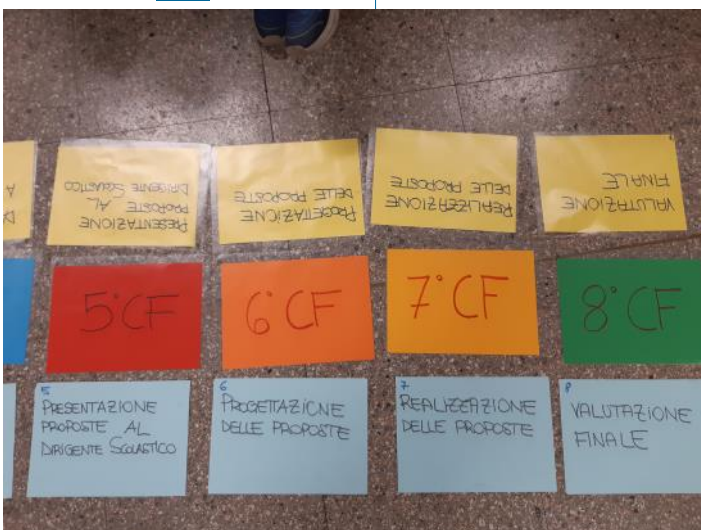 PRESENTAZIONE
PROPOSTE AL
DIRIGENTE SCOLASTICO
PROGETTAZIONE
DELLE PROPOSTE
REALIZZAZIONE
DELLE PROPOSTE
VALUTAZIONE
FINALE
5° CF
6° CF
7° CF
8° CF
5
PRESENTAZIONE
PROPOSTE AL
DIRIGENTE SCOLASTICO
6
PROGETTAZIONE
DELLE PROPOSTE
7
REALIZZAZIONE
DELLE PROPOSTE
8
VALUTAZIONE
FINALE